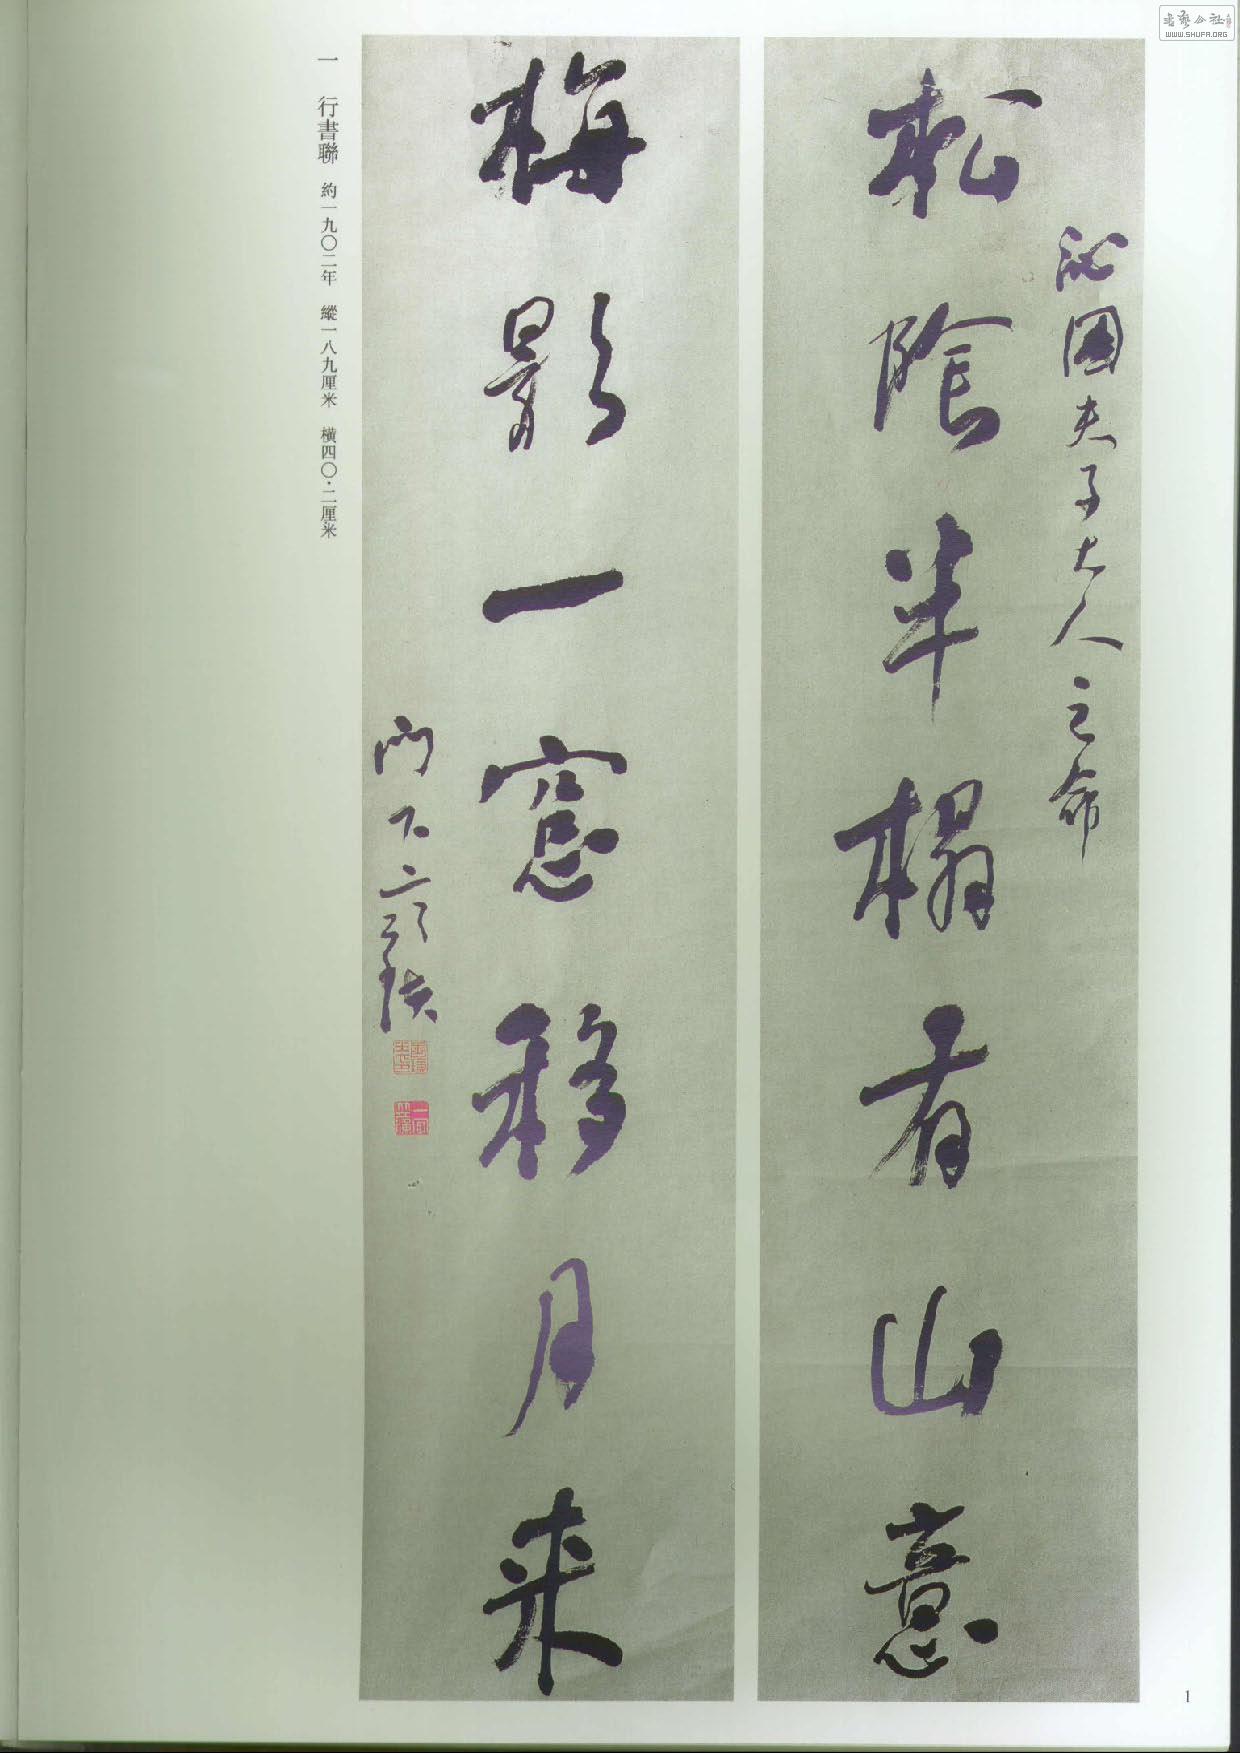 书艺公社
WWW.SHUFA.ORG
沁園夫子大人之命
松陰半榻有山意
梅影一窓移月来
門下
一 行書聯 約一九〇二年 縱一八九厘米 橫四〇·二厘米
1